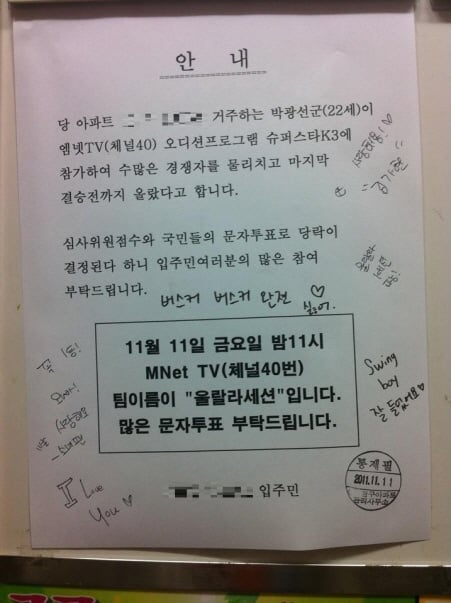 안 내
당 아파트 거주하는 박광선군(22세)이
엠넷TV(체널40) 오디션프로그램 슈퍼스타K3에
참가하여 수많은 경쟁자를 물리치고 마지막
결승전까지 올랐다고 합니다.
사랑해용!♡
김가현
심사위원점수와 국민들의 문자투표로 당락이
결정된다 하니 입주민여러분의 많은 참여
부탁드립니다.
버스커 버스커 완전♡
싫어.
11월 11일 금요일 밤11시
MNet TV(체널40번)
팀이름이 "울랄라세션"입니다.
많은 문자투표 부탁드립니다.
Swing
boy
잘 들었어요♡
I Love
You ♡
입주민
통계필
2011.11.11
관리사무소